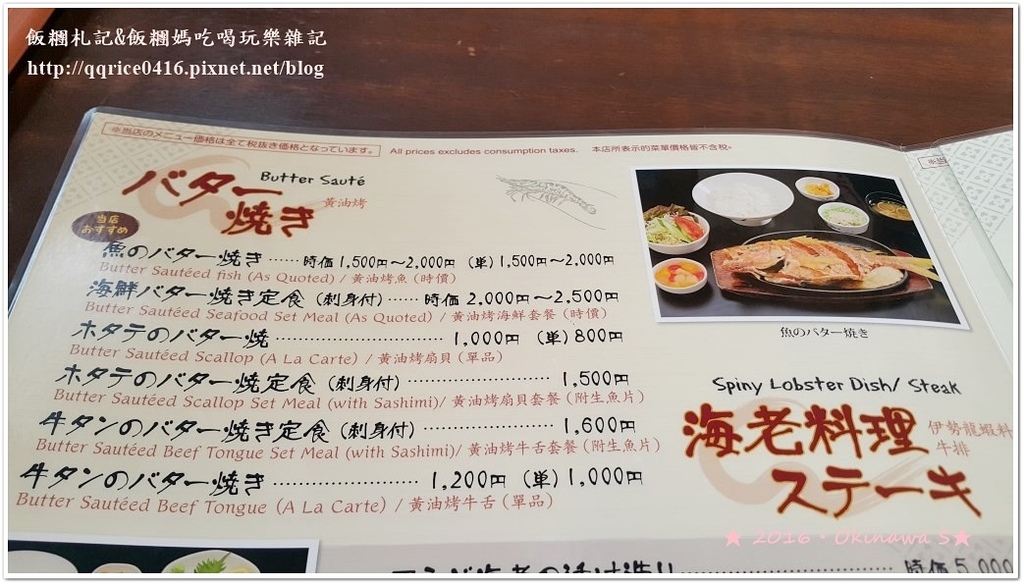 飯糰札記&飯糰媽吃喝玩樂雜記
http://qqrice0416.pixnet.net/blog
※当店のメニュー価格は全て税抜き価格となっています。 All prices excludes consumption taxes. 本店所表示的菜單價格皆不含税。
Butter Sauté
バター焼き
黄油烤
当店おすすめ
魚のバター焼き……時価1,500円〜2,000円 (単)1,500円〜2,000円
Butter Sautéed fish (As Quoted) / 黄油烤魚(時價)
海鮮バター焼き定食(刺身付)……時価2,000円〜2,500円
Butter Sautéed Seafood Set Meal (As Quoted) / 黄油烤海鮮套餐(時價)
ホタテのバター焼……………1,000円 (単)800円
Butter Sautéed Scallop (A La Carte) / 黄油烤扇貝(單品)
ホタテのバター焼定食(刺身付)……………1,500円
Butter Sautéed Scallop Set Meal (with Sashimi)/ 黄油烤扇貝套餐(附生魚片)
牛タンのバター焼き定食(刺身付)……………1,600円
Butter Sautéed Beef Tongue Set Meal (with Sashimi)/ 黄油烤牛舌套餐(附生魚片)
牛タンのバター焼き……………1,200円 (単)1,000円
Butter Sautéed Beef Tongue (A La Carte) / 黄油烤牛舌(單品)
魚のバター焼き
Spiny Lobster Dish/ Steak
海老料理
伊勢龍蝦料
牛排
ステーキ
※当
★ 2016・Okinawa S★
時価5,000